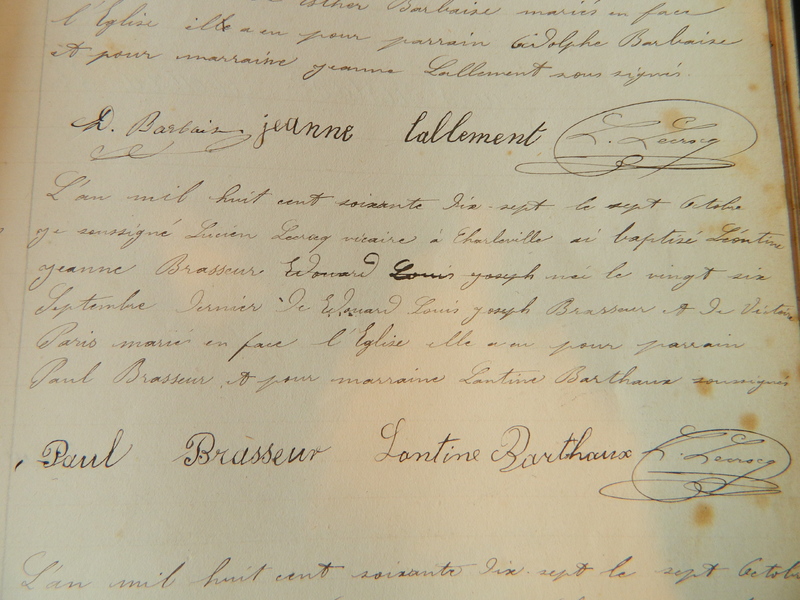 Esther Barbaise mariés en face
l'Eglise illa a eu pour parrain Adolphe Barbaise
et pour marraine jeanne Lallement sous signés.
A. Barbaise jeanne lallement L. Lecrocq
L'an mil huit cent soixante dix-sept le sept Octobre
je soussigné Lucien Lecrocq vicaire à Charleville ai baptisé Léontine
jeanne Brasseur Edouard Louis joseph née le vingt six
Septembre dernier de Edouard Louis joseph Brasseur et de Victoire
Paris marié en face l'Eglise elle a eu pour parrain
Paul Brasseur et pour marraine Lontine Barthaux soussignés
Paul Brasseur Lontine Barthaux L. Lecrocq
L'an mil huit cent soixante dix-sept le sept Octobre